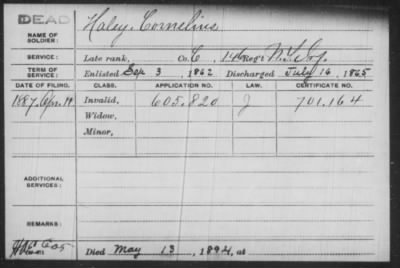 DEAD
NAME OF SOLDIER: Haley, Cornelius
SERVICE: Late rank, Co. C, 146 Reg't N.Y. Inf.
TERM OF SERVICE: Enlisted Sep 3, 1862 Discharged July 16, 1865
DATE OF FILING. CLASS. APPLICATION NO. LAW. CERTIFICATE NO.
1887, Apr. 19 Invalid, 605.820 J 701.164
Widow,
Minor,
ADDITIONAL SERVICES:
REMARKS:
Died May 13, 1894, at